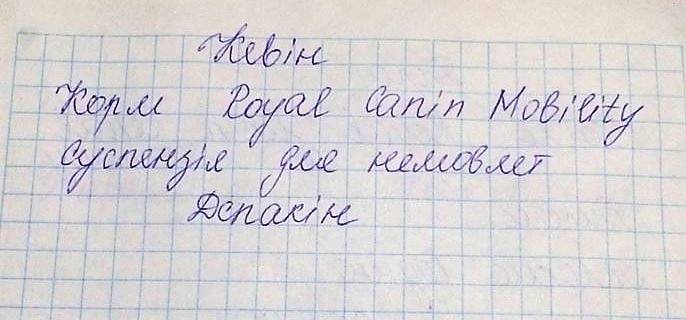 Кевін
Корм Royal Canin Mobility
суспензія для немовлят
Депакін